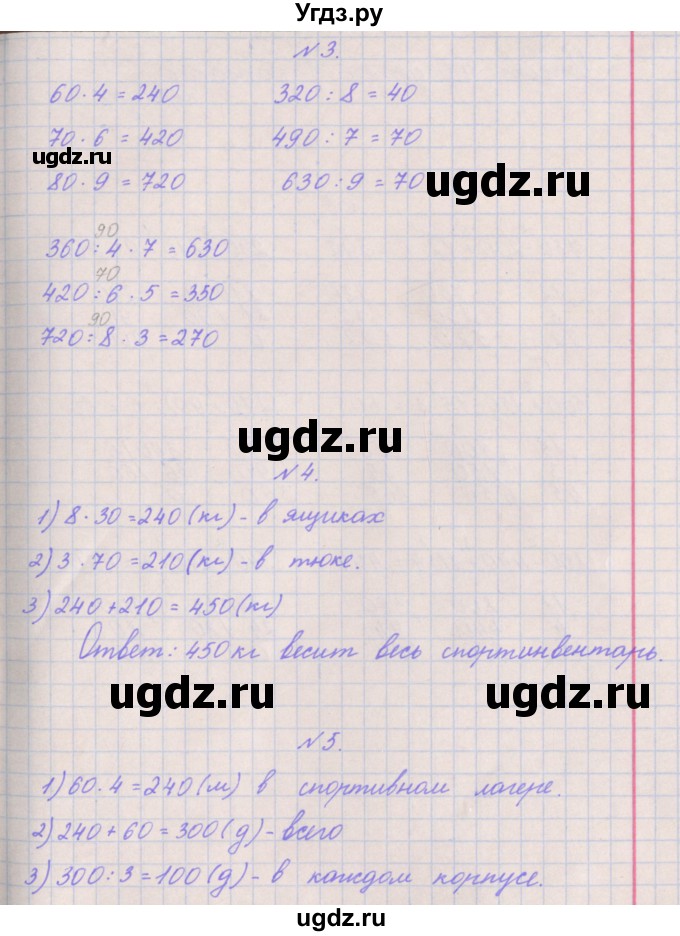 Угдз.ру
N 3.
60 · 4 = 240 320 : 8 = 40
70 · 6 = 420 490 : 7 = 70
ugdz.ru
80 · 9 = 720 630 : 9 = 70
ugdz.ru
90
360 : 4 · 7 = 630
70
420 : 6 · 5 = 350
90
720 : 8 · 3 = 270
ugdz.ru
N 4.
1) 8 · 30 = 240 (кг) - в ящиках
2) 3 · 70 = 210 (кг) - в тюке.
3) 240 + 210 = 450 (кг)
Ответ: 450 кг весит весь спортинвентарь.
ugdz.ru ugdz.ru
N 5.
1) 60 · 4 = 240 (м) в спортивном лагере.
2) 240 + 60 = 300 (д) - всего
3) 300 : 3 = 100 (д) - в каждом корпусе.
ugdz.ru